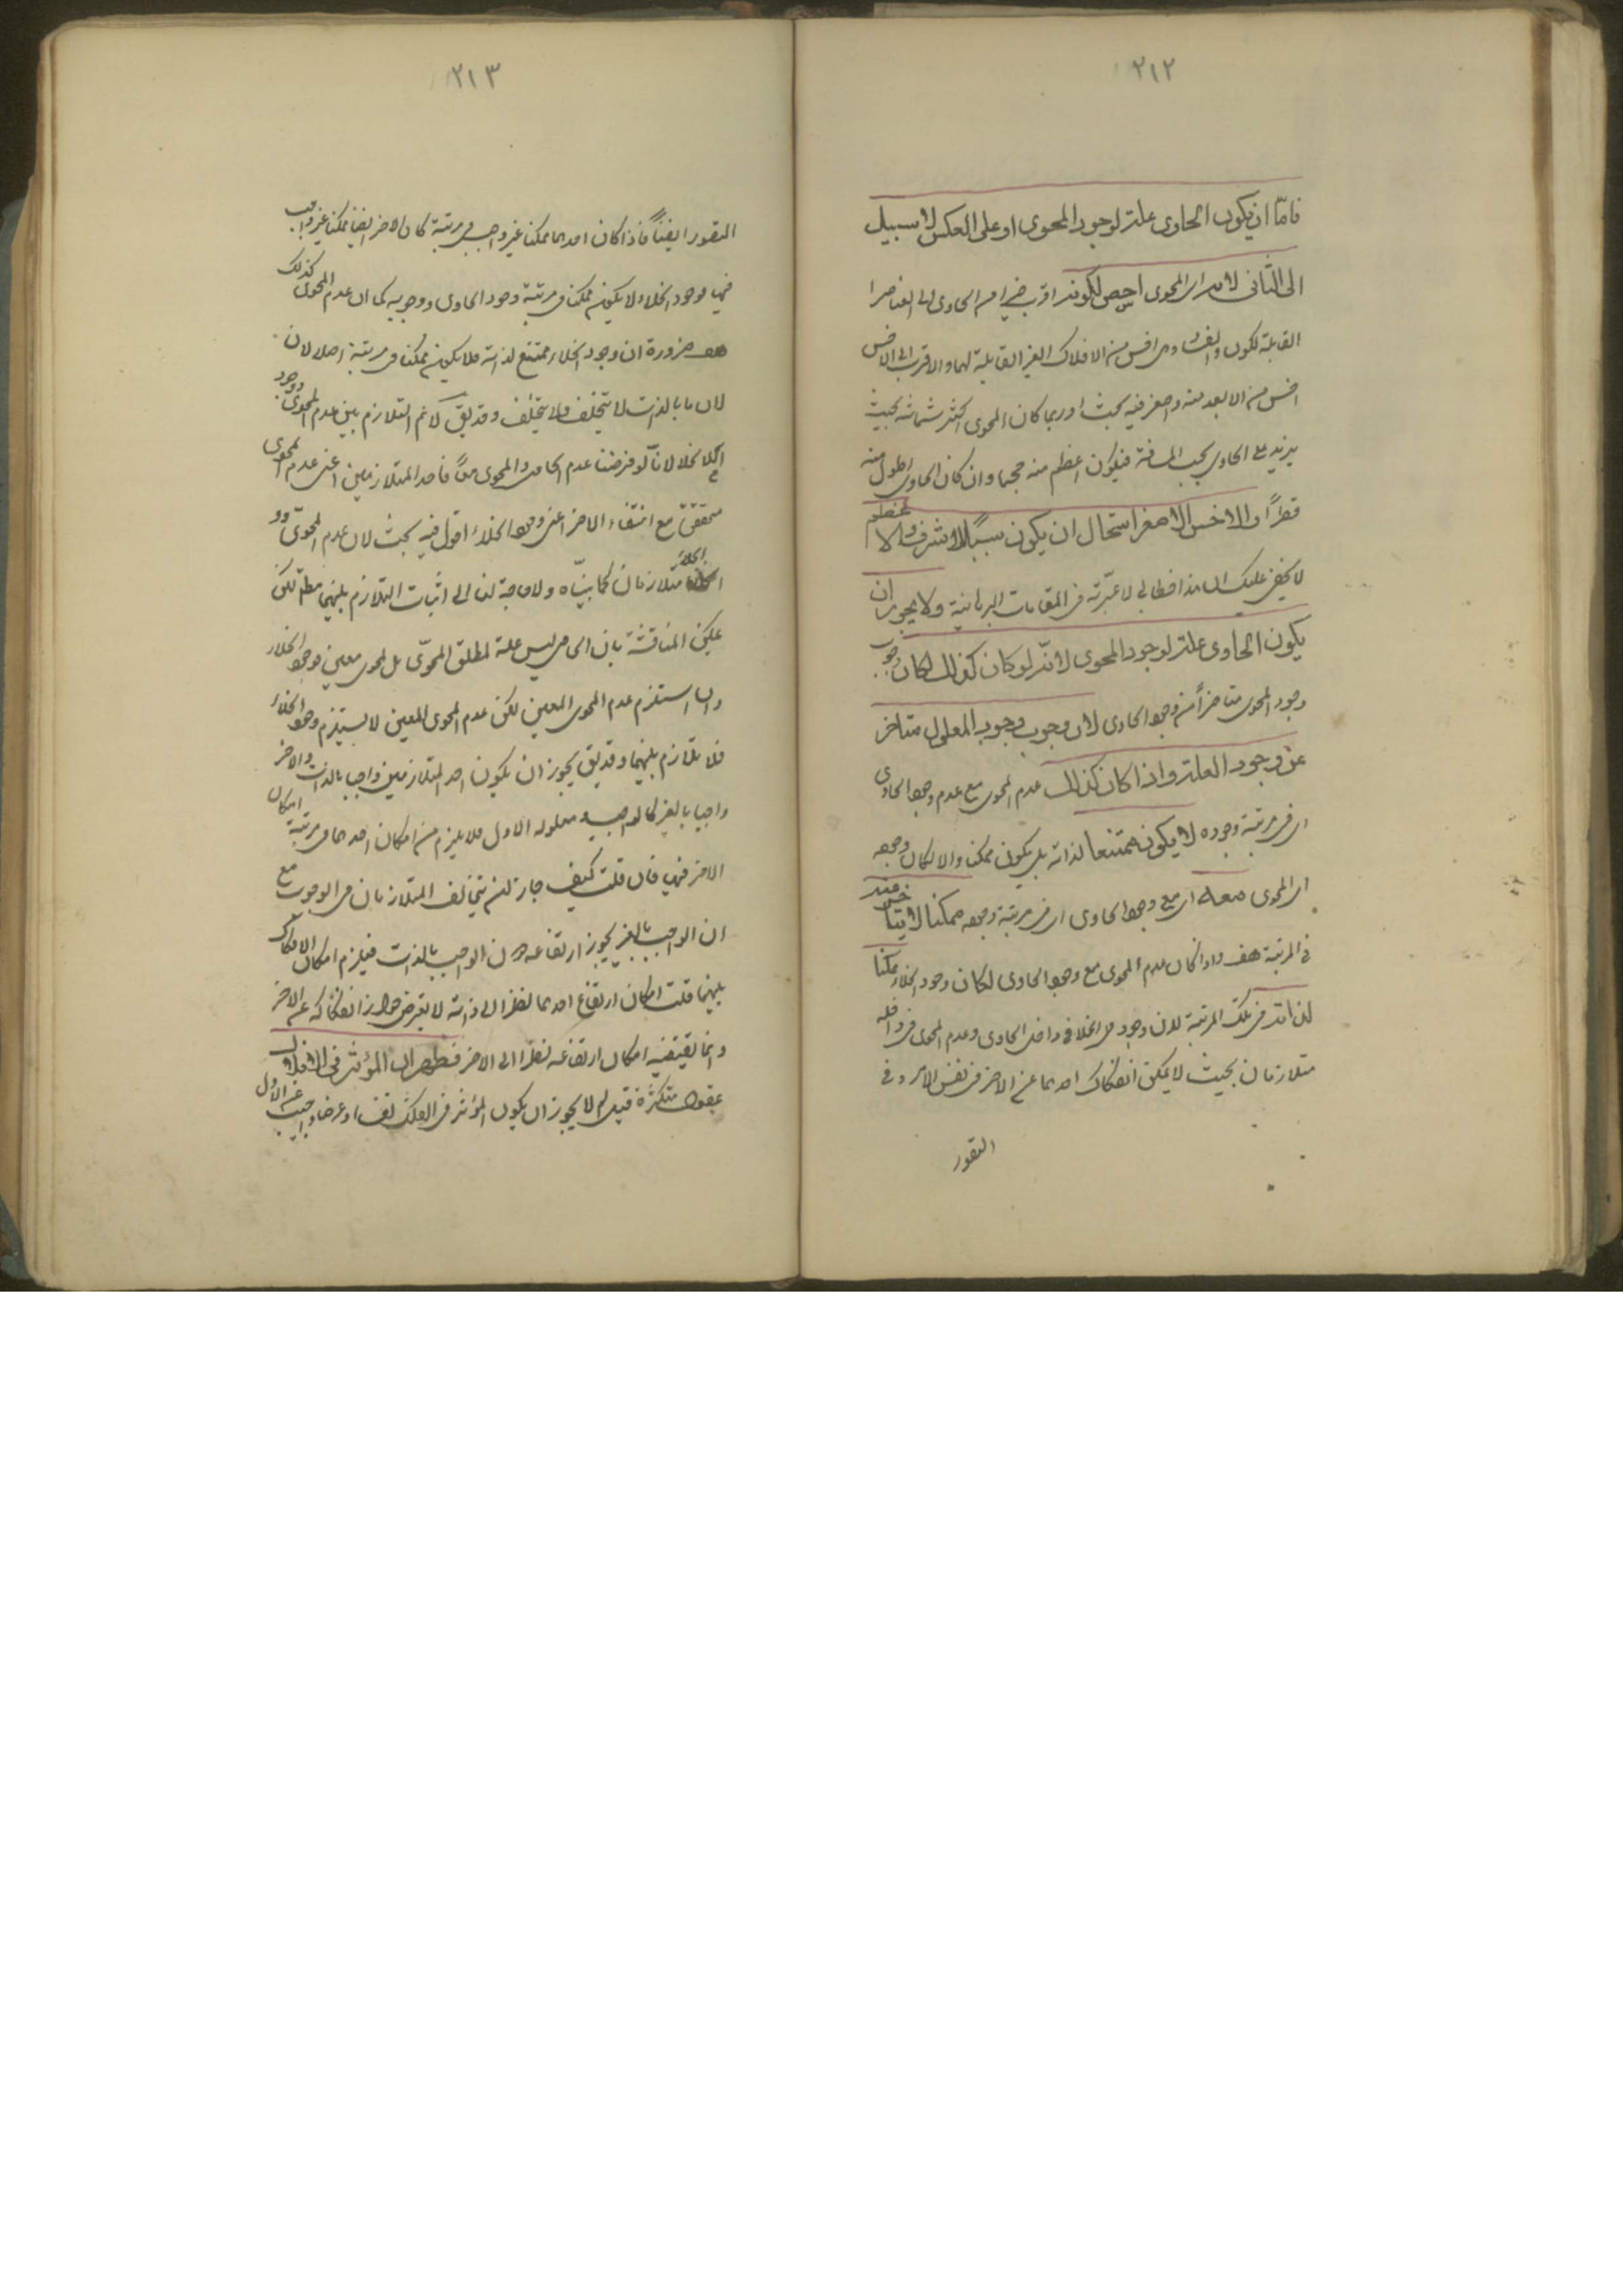 ٢١٢
فامّا ان يكون الحاوى علة لوجود المحوى او على العكس لا سبيل
الى الثانى لان المحوى اخس لكونه اقرب من الحاوى الى العناصر
القابلة للكون والفساد وهى اخس من الافلاك الغير القابلة لهما والاقرب الى الاخس
اخس من الابعد منه واصغر فيه بحث اذ ربما كان المحوى اكثر بحيث
يزيد على الحاوى بحسب المسافة فيكون اعظم منه حجما وان كان الحاوى اطول منه
قطرًا والاخس الاصغر استحال ان يكون سببًا للاشرف والاعظم
لا يخفى عليك ان هذا خطابى لا عبرة به فى المقامات البرهانية ولا يجوز ان
يكون الحاوى علة لوجود المحوى لانّه لو كان كذلك لكان وجوب
وجود المحوى متاخرًا عن وجود الحاوى لان وجوب وجود المعلول متاخر
عن وجود العلة واذا كان كذلك عدم المحوى مع عدم وجود الحاوى
اى فى مرتبة وجوده لا يكون ممتنعا لذاته بل يكون ممكنا والا لكان وجوده
اى المحوى معه اى مع وجود الحاوى اى فى مرتبة وجوده ممكنا لا
فى المرتبة هف واذا كان عدم المحوى مع وجود الحاوى لكان وجود الخلاء ممكنا
لذاته فى تلك المرتبة لان وجود الخلاء فى داخل الحاوى وعدم المحوى فى داخله
متلازمان بحيث لا يمكن انفكاك احدهما عن الاخر فى نفس الامر وفى
التصور
٢١٣
التصور ايضًا فاذا كان احدهما ممكنا غير واجب فى مرتبة كان الاخر ايضا ممكنا غير واجب
فيها فوجود الخلاء لا يكون ممكنا فى مرتبة وجود الحاوى ووجوبه كما ان عدم المحوى كذلك
هف ضرورة ان وجود الخلاء ممتنع لذاته فلا يكون ممكنا فى مرتبة اصلا لان
لان ما بالذات لا يتخلف ولا يختلف وقد يق لا نم التلازم بين عدم المحوى ووجود
الخلاء لانّا لو فرضنا عدم الحاوى والمحوى معًا فاحد المتلازمين اعنى عدم المحوى
متحقق مع انتفاء الاخر اعنى وجود الخلاء اقول فيه بحث لان عدم المحوى ووجود
الخلاء متلازمان كما بيّناه ولا حاجة لنا الى اثبات التلازم بينهما مطم لكن
يمكن المناقشة بان الحاوى ليس علة لمطلق المحوى بل لمحوى معين فوجود الخلاء
وان استلزم عدم المحوى المعين لكن عدم المحوى المعين لا يستلزم وجود الخلاء
فلا تلازم بينهما وقد يق يجوز ان يكون احد المتلازمين واجبا بالذات والاخر
واجبا بالغير كالواجب ومعلوله الاول فلا يلزم من امكان احدهما فى مرتبة امكان
الاخر فيها فان قلت كيف جاز ان يتخالف المتلازمان فى الوجوب مع
ان الواجب بالغير يجوز ارتفاعه دون الواجب بالذات فيلزم امكان الانفكاك
بينهما قلت امكان ارتفاع احدهما نظرا الى ذاته لا يقتضى جواز انفكاكه عن الاخر
وانما يقتضيه امكان ارتفاعه نظرا الى الاخر فظهر ان المؤثر فى الافلاك
عقول متكثرة قيل لم لا يجوز ان يكون المؤثر فى الفلك نفسا او عرضا واجيب عن الاول